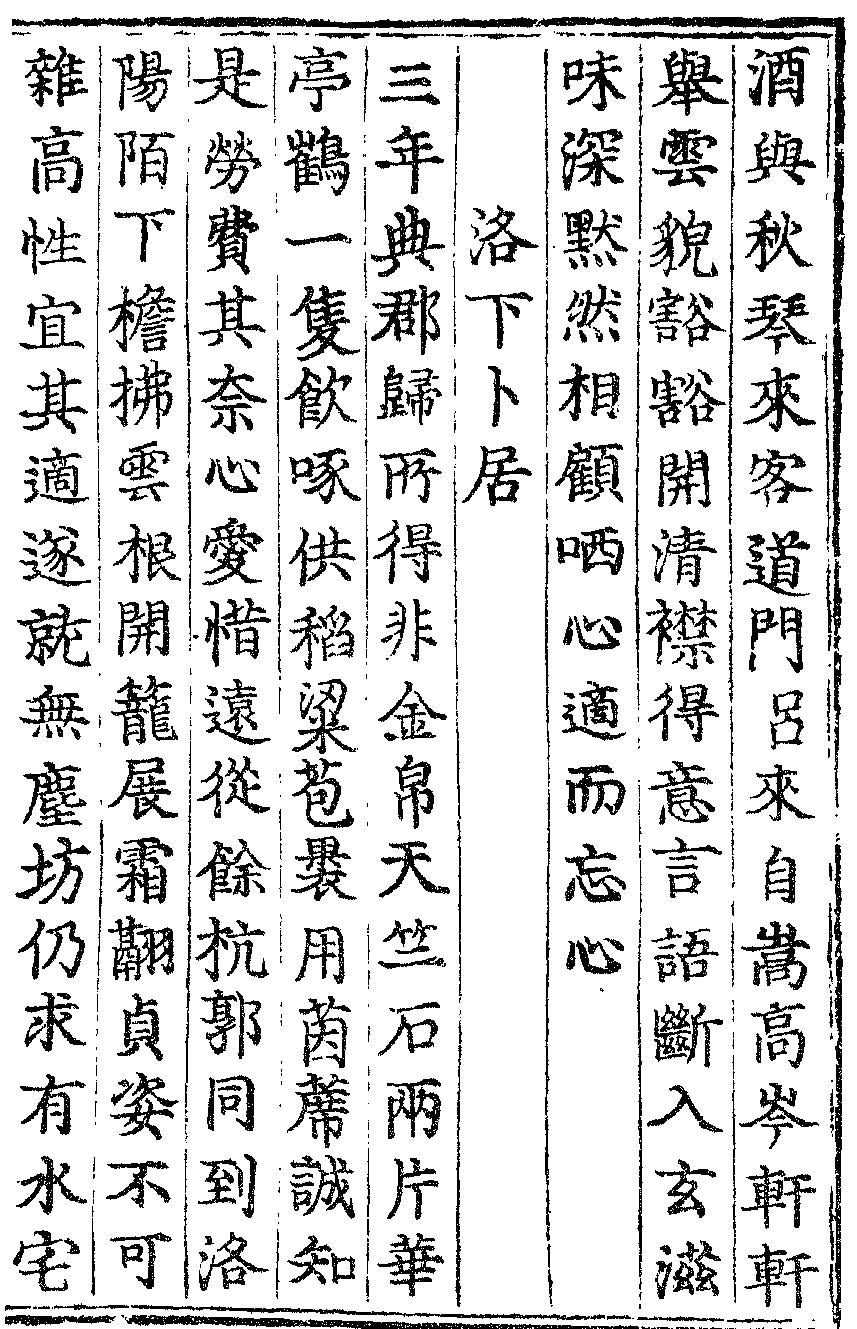 酒與秋琴來客道門呂來自嵩高岑軒軒
舉雲貌豁豁開清襟得意言語斷入玄滋
味深默然相顧哂心適而忘心
洛下卜居
三年典郡歸所得非金帛天竺石兩片華
亭鶴一隻飲啄供稻粱苞裹用茵蓆誠知
是勞費其奈心愛惜遠從餘杭郭同到洛
陽陌下檐拂雲根開籠展霜翮貞姿不可
雜高性宜其適遂就無塵坊仍求有水宅